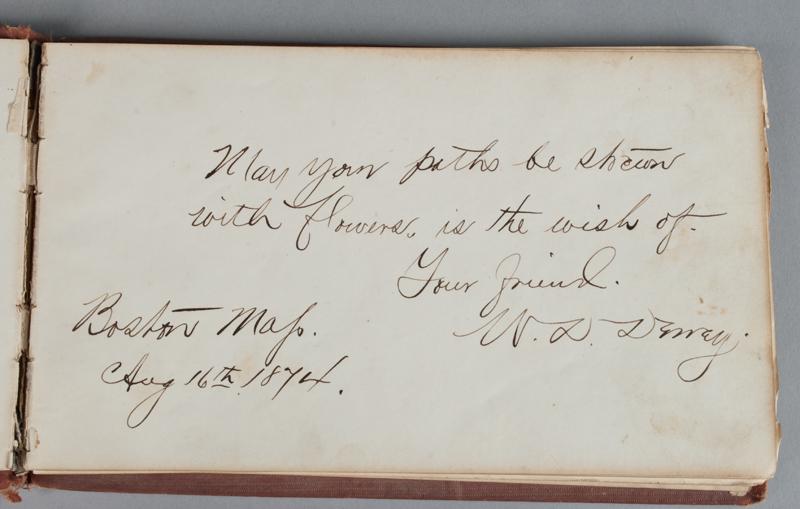 May your paths be strewn
with flowers, is the wish of.
Your friend.
W. D. Dewey.
Boston Mass.
Aug 16th. 1874.